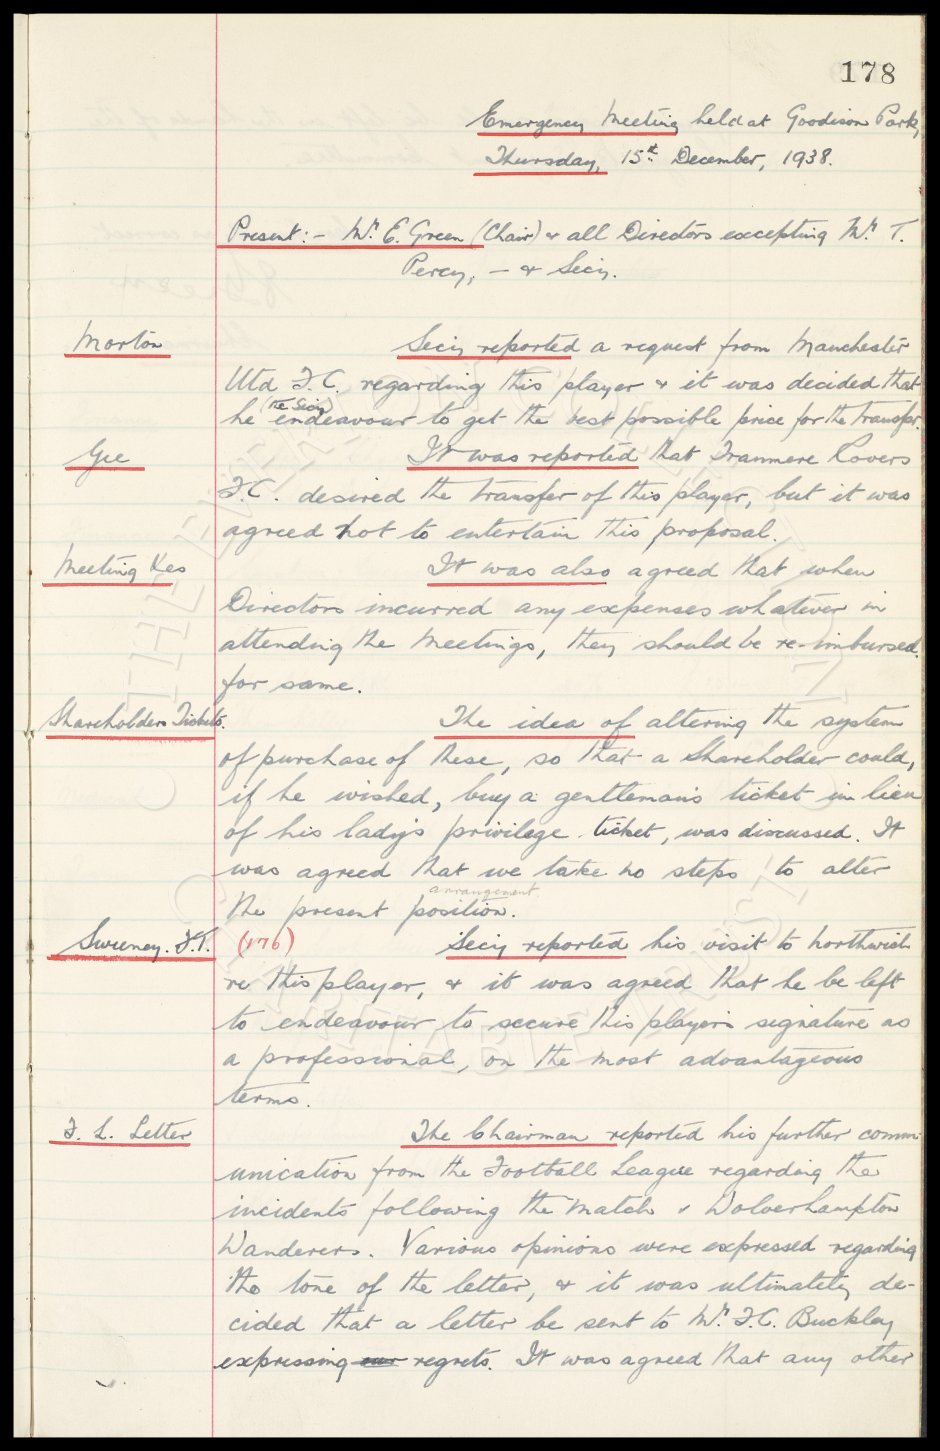 178
Emergency Meeting held at Goodison Park,
Thursday, 15th December, 1938.
Present:- Mr. E. Green (Chair) & all Directors excepting Mr. T.
Percy, - & Secy.
Morton
Secy reported a request from Manchester
Utd F.C. regarding this player & it was decided that
he (the Secy) endeavour to get the best possible price for the transfer.
Gee
It was reported that Tranmere Rovers
F.C. desired the transfer of this player, but it was
agreed not to entertain this proposal.
Meeting Xes
It was also agreed that when
Directors incurred any expenses whatever in
attending the Meetings, they should be re-imbursed
for same.
Shareholders Tickets.
The idea of altering the system
of purchase of these, so that a Shareholder could,
if he wished, buy a gentleman's ticket in lieu
of his lady's privilege ticket, was discussed. It
was agreed that we take no steps to alter
arrangement.
the present position.
Sweeney. F.T. (176)
Secy reported his visit to Northwich
re this player, & it was agreed that he be left
to endeavour to secure this player's signature as
a professional, on the most advantageous
terms.
F. L. Letter
The Chairman reported his further comm-
unication from the Football League regarding the
incidents following the Match v Wolverhampton
Wanderers. Various opinions were expressed regarding
the tone of the letter, & it was ultimately de-
cided that a letter be sent to Mr. F.C. Buckley
expressing our regrets. It was agreed that any other